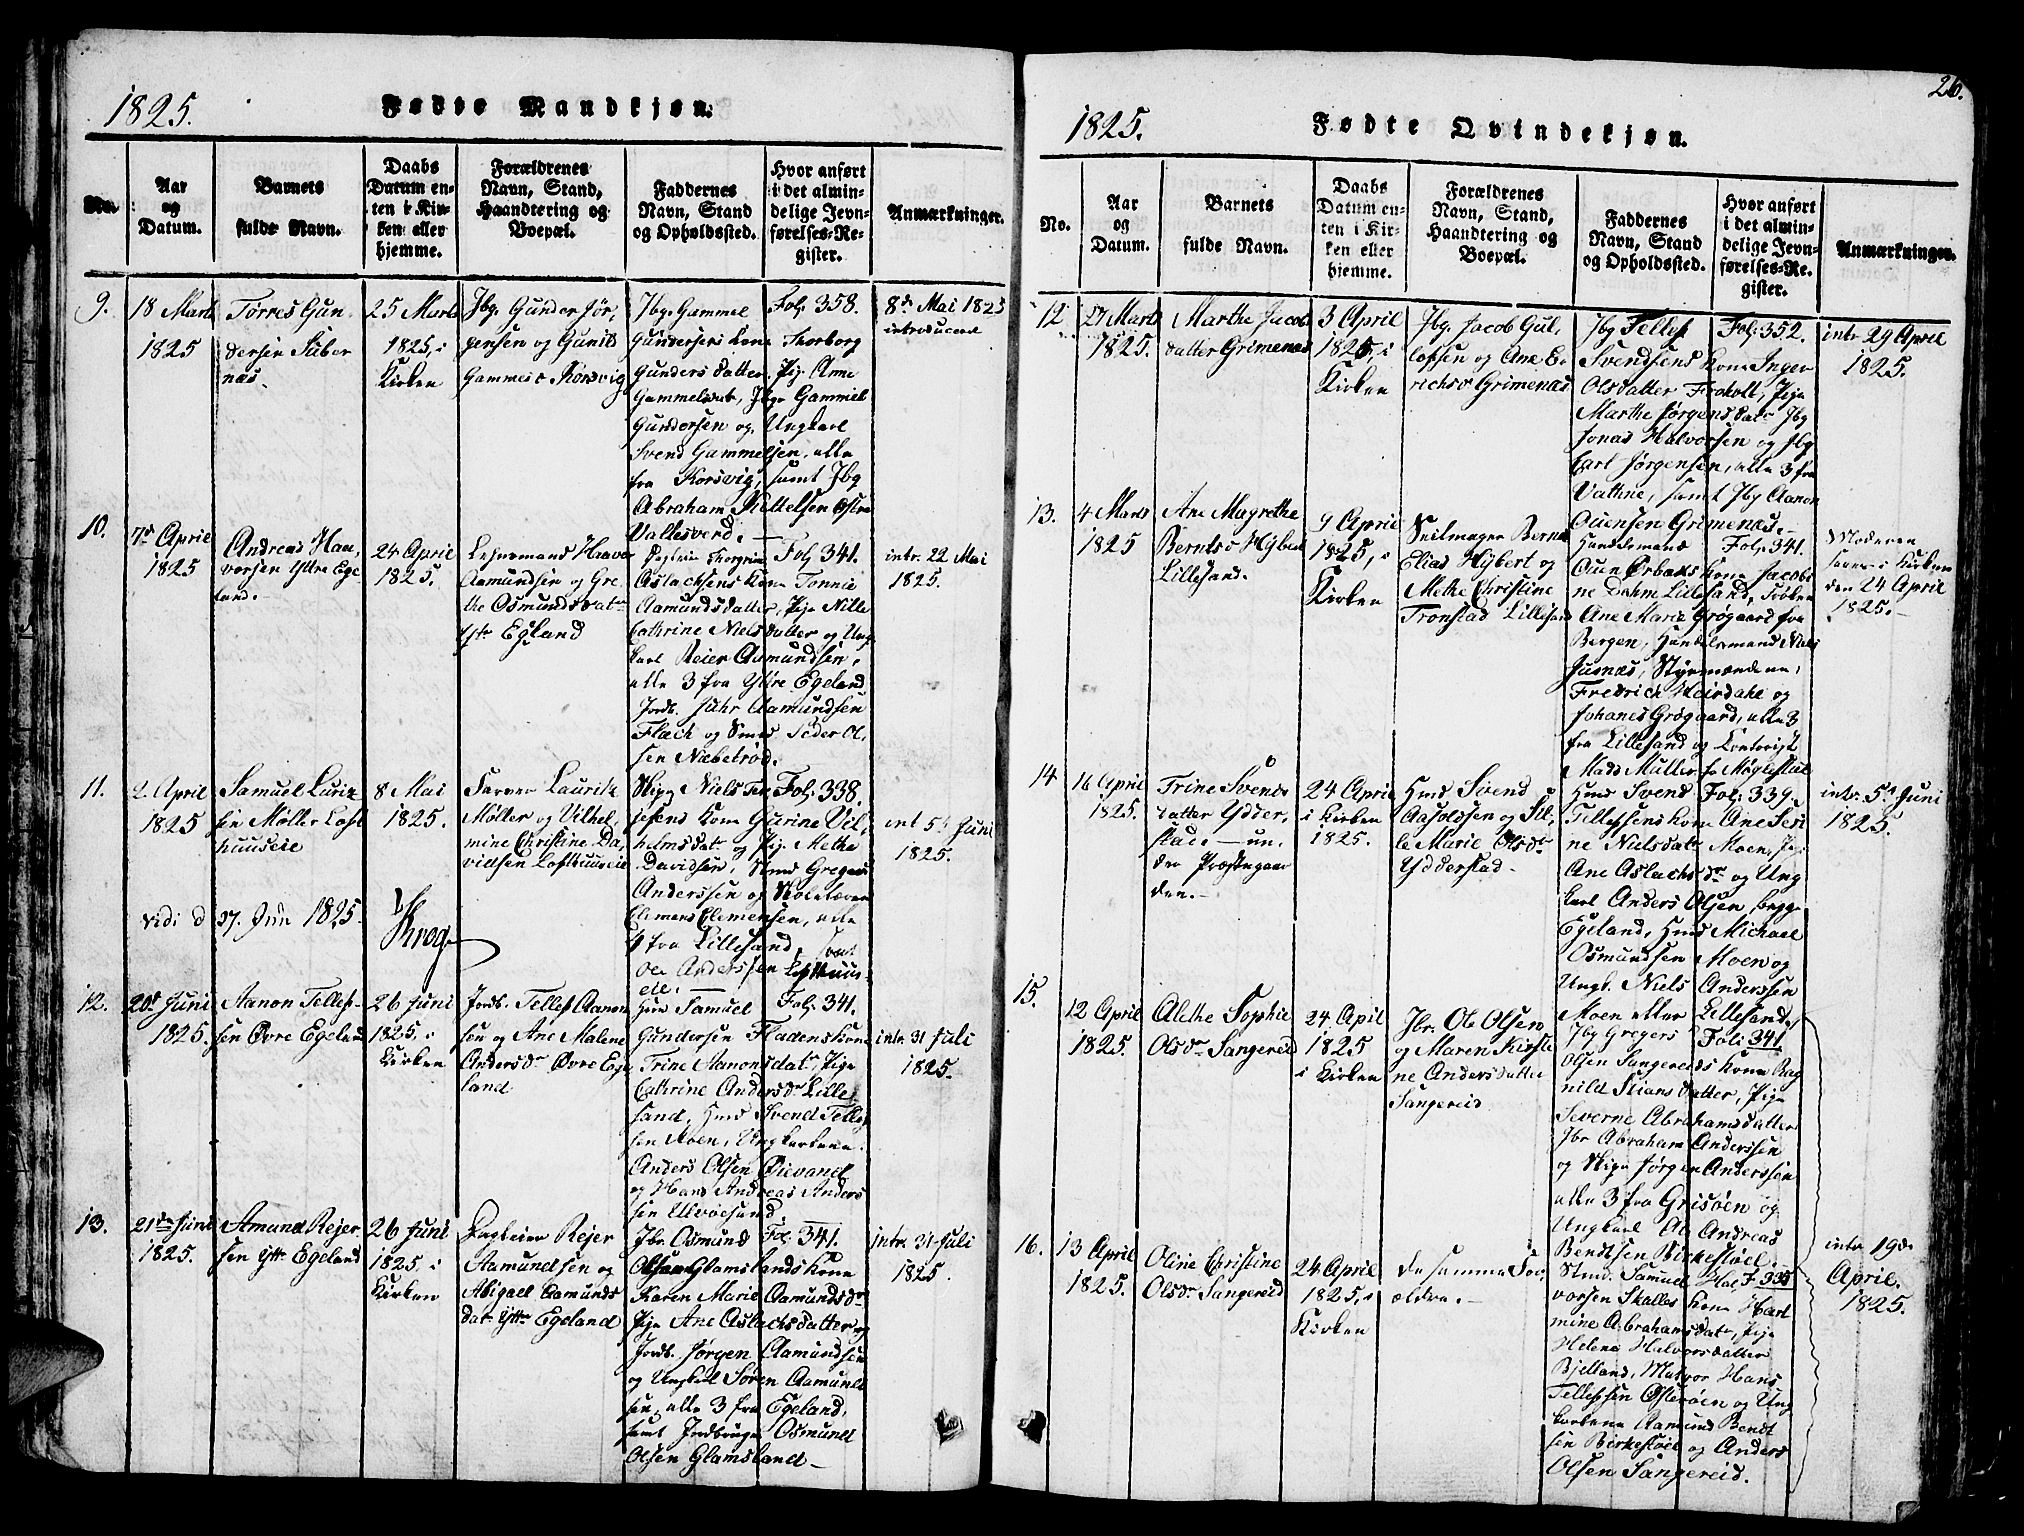 1825.
Fødte Mandkjøn.
No.
Aar
og
Datum.
Barnets
fulde Navn.
Daabs
Datum en-
ten i Kir-
ken eller
hjemme.
Forældrenes
Navn, Stand,
Haandtering og
Boepæl.
Faddernes
Navn, Stand
og Opholdssted.
Hvor anført
i det almin-
delige Jevn-
førelses-Re-
gister.
Anmærkninger.
9.
18 Marts
1825
Tørres Gun-
dersen Süber
næs.
25 Marts
1825, i
Kirken
Jbg. Gunder Jør,
gensen og Gunild
Gammelsd Korsvig
Jbg. Gammel
Gundersens Kone Thorborg
Gunders datter, Pige Anne
Gammelsdat, Jbgr Gammel
Gundersen og Ungkarl
Svend Gammelsen, alle
fra Korsvig, samt Jbg
Abraham Kittelsen Østre
Vallesverd.
Fol. 358.
8de Mai 1825
introduceret
10.
7de April
1825
Andreas Haa,
vorsen Ytre Ege
land.
24 April
1825.
Leiermand Haavor
Aamundsen og Gre-
the Osmundsdatr
Ytr Egeland
Aslachsens Kone Tonnie
Aamundsdatter, Pige Nille
Cathrine Nielsdatter og Ung
karl Reier Aamundsen,
alle 3 fra Ytre Egeland
Jordb. Juhr Aamundsen
Flach og Smed Peder Ol,
sen Næbetrød.
Fol. 341.
intr. 22 Mai
1825.
11.
2 April
1825
Samuel Lurit
sen Møller Loft
huuseie
8 Mai
1825.
Farver Lauritz
Møller og Vilhel,
mine Christine Da,
vidsen Lofthuuseie
Skipp Niels Ten
jesens Kone Gurine Vil,
helmsdat og Pige Methe
Davidsen, Smed Gregers
Anderssen og Skolelærer
Clemens Clemensen, alle
4 fra Lillesand, samt
Ole Anderssen Lofthuus-
eie.
Fol. 338.
int 5te Juni
1825.
Vidi d 27. Jun 1825.
Krog
12.
20de Juni
1825.
Aanon Tellef-
sen Øvre Egeland
26 Juni
1825, i
Kirken
Jordb. Tellef Aanon
sen og Ane Malene
Andersdr Øvre Ege
land
Hmd Samuel
Gundersen Fladens Kone
Trine Aanonsdatr, Pige
Cathrine Andersdr Lille
sand, Hmd Svend Tellef
sen Moen, Ungkarlene
Anders Olsen Øievand
og Hans Andreas Anders
sen Ulvøesund
Fol. 341.
intr. 31 Juli
1825.
13.
21de Juni
1825.
Amund Rejer
sen Ytr. Egeland
26 Juni
1825, i
Kirken
Pagteier Rejer
Aamundsen og
Abigael Aamunds
datr Ytr Egeland
Jbr. Osmund
Olsen Glamslands Kone
Karen Marie Aamundsdr
Pige Ane Aslachsdatter og
Jordb. Jørgen Aamundsen
og Ungkarl Søren Aamund
sen, alle 3 fra Egeland,
samt Jordbruger Osmund
Olsen Glamsland
Fol. 341.
intr. 31 Juli
1825.
26.
1825.
Fødte Qvindekjøn.
No.
Aar
og
Datum.
Barnets
fulde Navn.
Daabs
Datum en-
ten i Kir-
ken eller
hjemme.
Forældrenes
Navn, Stand,
Haandtering og
Boepæl.
Faddernes
Navn, Stand
og Opholdssted.
Hvor anført
i det almin-
delige Jevn-
førelses-Re-
gister.
Anmærkninger.
12
27 Marts
1825.
Marthe Jacobs
datter Grimenæs
3 April
1825, i
Kirken
Jbg. Jacob Gul,
lofsen og Ane E,
richsd Grimenæs
Jbg Tellef
Svendsens Kone Inger
Olsdatter Frokolt, Pige
Marthe Jørgensdatr Jbg
Jonas Halvorsen og Jbg
Carl Jørgensen, alle 3 fra
Vathne, samt Jbg Aanon
Ouensen Grimenæs.
Fol. 352.
intr 29 April
1825.
13.
4 Marts
1825
Ane Magrethe
Berntsd Hÿbert
Lillesand.
9 April
1825, i
Kirken
Seilmager Bernt
Elias Hÿbert og
Methe Christine
Tronstad Lillesand
Handelsmand
Ouen Ørbæks Kone Jacobi
ne Dahm Lillesand, Frøken
Ane Marie Grøgaard fra
Bergen, Handelsmand Niels
Jusnæs, Styrmændene,
Fredrich Hairdahl og
Johanes Grøgaard, alle 3
fra Lillesand og Contorist
Mads Muller fr Møglestue
Fol. 341.
Moderen
i Kirken
den 24 April
1825.
14
16 April
1825.
Trine Svends
datter Ydder,
stad, un-
der Præstegaar
den.
24 April
i Kirken
1825.
Hmd Svend
Aasoldsen og Sil-
le Marie Olsdr
Ydderstad
Hmd Svend
Tellefsens Kone Ane Seri
ne Nielsdatr Moen, Pi
Ane Aslachsdr og Ung
karl Anders Olsen, begge
Egeland, Hmd Michael
Osmundsen Moen og
Ungk. Niels Anderssen
Moen eller Lillesand.
Fol. 339.
intr. 5te Juni
1825.
15.
12 April
1825.
Alethe Sophie
Olsdr Sangereid
24 Apil
1825
i Kirken
Jbr. Ole Olsen
og Maren Kirste
ne Andersdatter
Sangereid
Jbg Gregers
Olsen Sangereids Kone Rag
nild Stiansdatter, Pige
Severne Abrahamsdatter
Jbr Abraham Anderssen
og Skipr Jørgen Anderssen
alle 3 fra Grisøen og
Ungkarl Ole Andreas
Bendtsen Birkestøel
Fol. 341.
16.
13 April
1825.
Oline Christine
Olsdr Sangereid
24 April
1825, i
Kirken
De samme For,
ældre.
Stmd. Samuel Hal,
vorsen Skalles Kone Hart
mine Abrahamsdatr, Pige
Helene Halvorsdatter
Bjelland, Matros Hans
Tellefsen Østerøen og Ung
karlene Aamund Bendt
sen Birkestøel og Anders
Olsen Sangereid.
F. 335
intr. 19de
April.
1825.